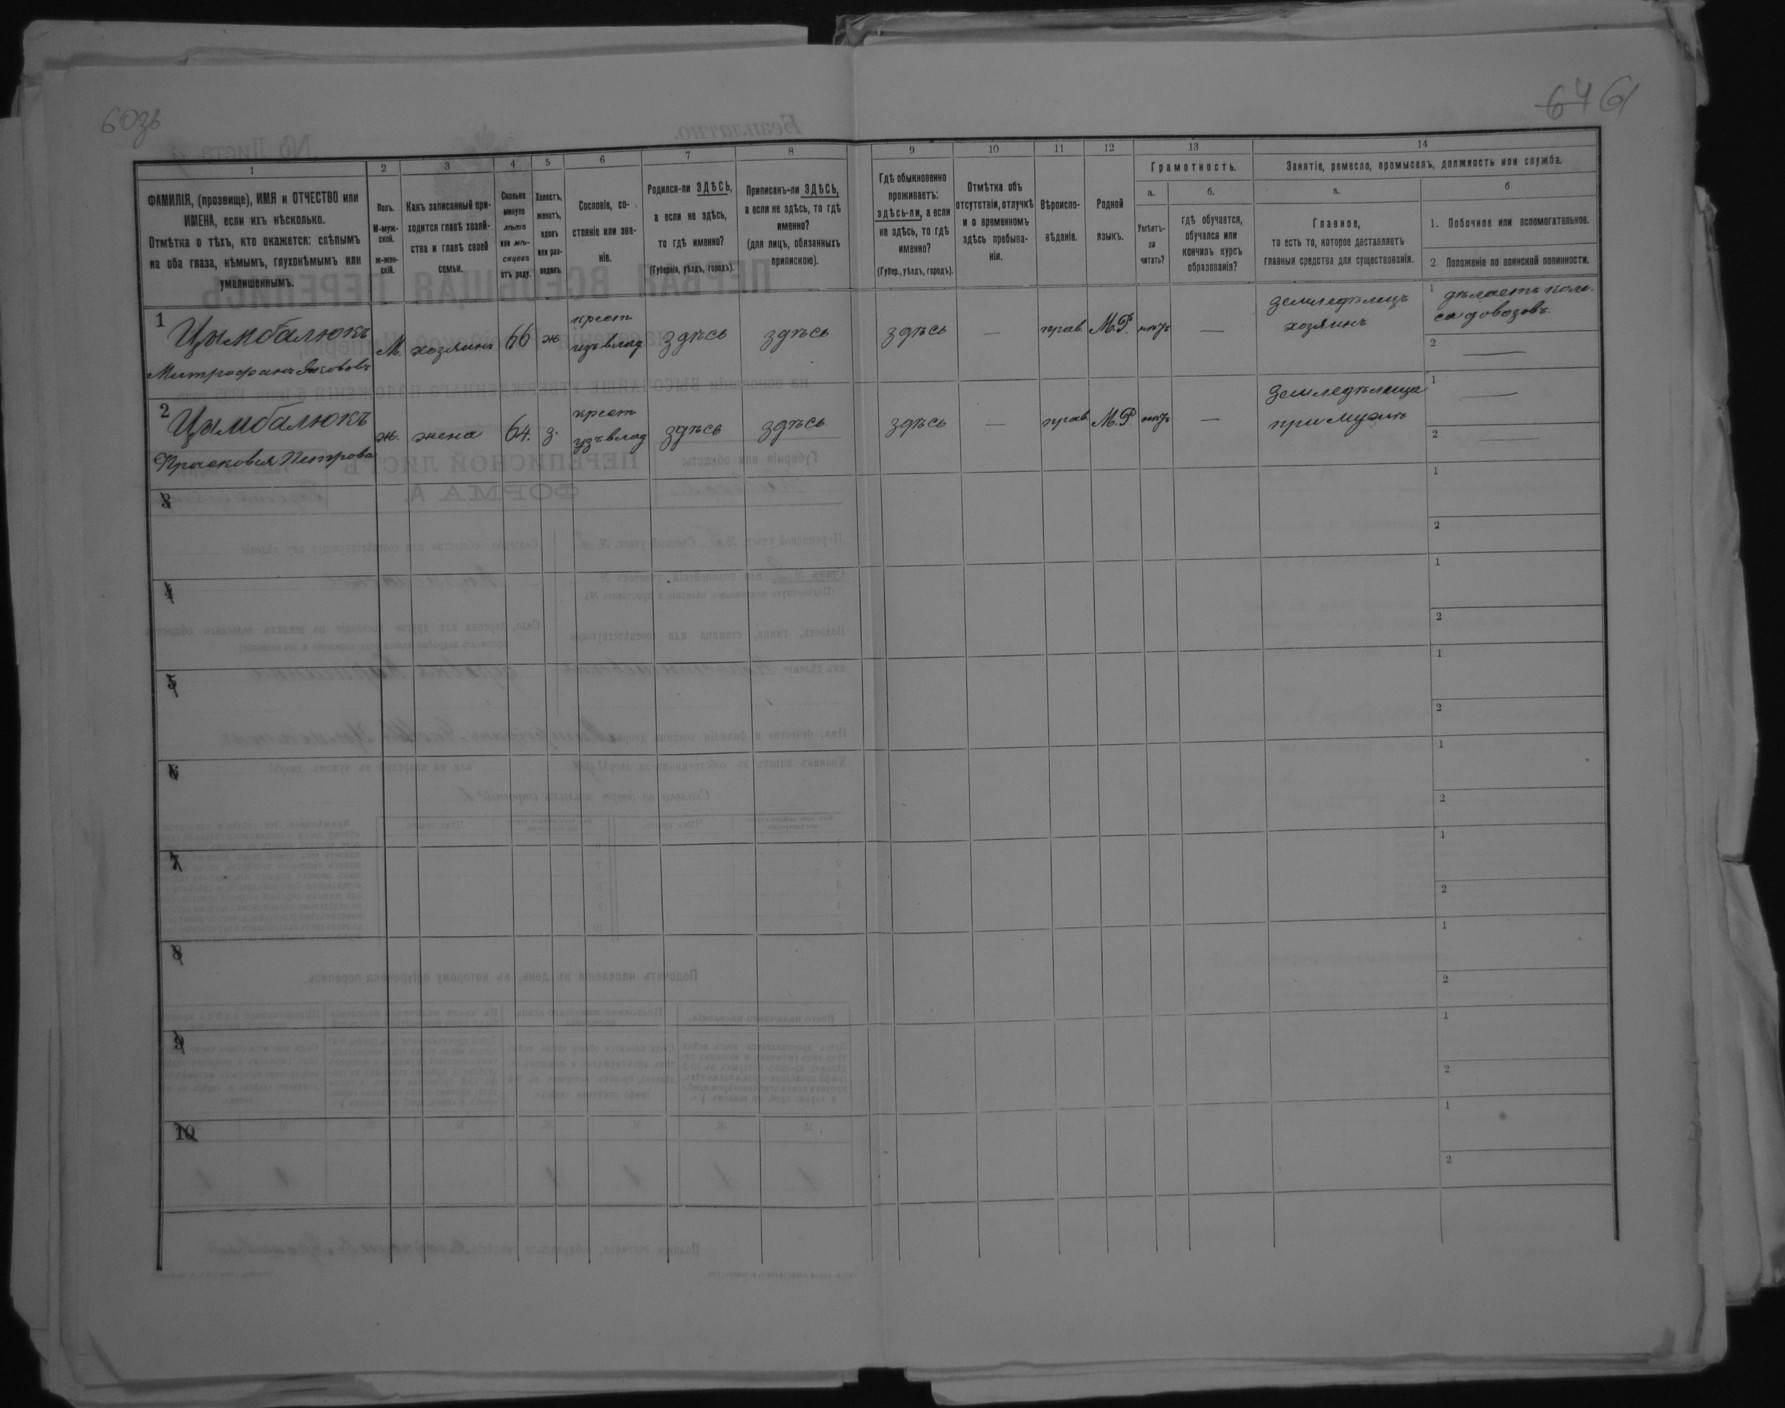 60зв
64 61
1
ФАМИЛІЯ, (прозвище), ИМЯ и ОТЧЕСТВО или
ИМЕНА, если ихъ нѣсколько.
Отмѣтка о тѣхъ, кто окажется: слѣпымъ
на оба глаза, нѣмымъ, глухонѣмымъ или
умалишеннымъ.
2
Полъ.
М-муж-
ской.
ж-жен-
скій.
3
Какъ записанный при-
ходится главѣ хозяй-
ства и главѣ своей
семьи.
4
Сколько
минуло
лѣтъ
или мѣ-
сяцевъ
отъ роду.
5
Холостъ,
женатъ,
вдовъ
или раз-
веденъ.
6
Сословіе, со-
стояніе или зва-
ніе.
7
Родился-ли ЗДѢСЬ,
а если не здѣсь,
то гдѣ именно?
(Губернія, уѣздъ, городъ).
8
Приписанъ-ли ЗДѢСЬ,
а если не здѣсь, то гдѣ
именно?
(для лицъ, обязанныхъ
припискою).
9
Гдѣ обыкновенно
проживаетъ:
здѣсь-ли, а если
не здѣсь, то гдѣ
именно?
(Губер., уѣздъ, городъ).
10
Отмѣтка объ
отсутствіи, отлучкѣ
и о временномъ
здѣсь пребыва-
ніи.
11
Вѣроиспо-
вѣданіе.
12
Родной
языкъ.
13
Грамотность.
а.
Умѣетъ-
ли
читать?
б.
гдѣ обучается,
обучался или
кончилъ курсъ
образованія?
14
Занятіе, ремесло, промыселъ, должность или служба.
а.
Главное,
то есть то, которое доставляетъ
главныя средства для существованія.
б
1. Побочное или вспомогательное.
2. Положеніе по воинской повинности.
1 Цымбалюкъ
Митрофанъ Якововъ
М. хозяинъ 66 ж крест
изъ влад здѣсь здѣсь здѣсь — прав М.Р. нѣтъ —
земледѣлецъ
хозяинъ
1 дѣлаетъ коле-
са до возовъ
2 —
2 Цымбалюкъ
Прасковья Петрова
ж. жена 64. з. крест
изъ влад здѣсь здѣсь здѣсь — прав М.Р. нѣтъ —
земледѣлица
при мужѣ
1 —
2 —
3 1
2
4 1
2
5 1
2
6 1
2
7 1
2
8 1
2
9 1
2
10 1
2